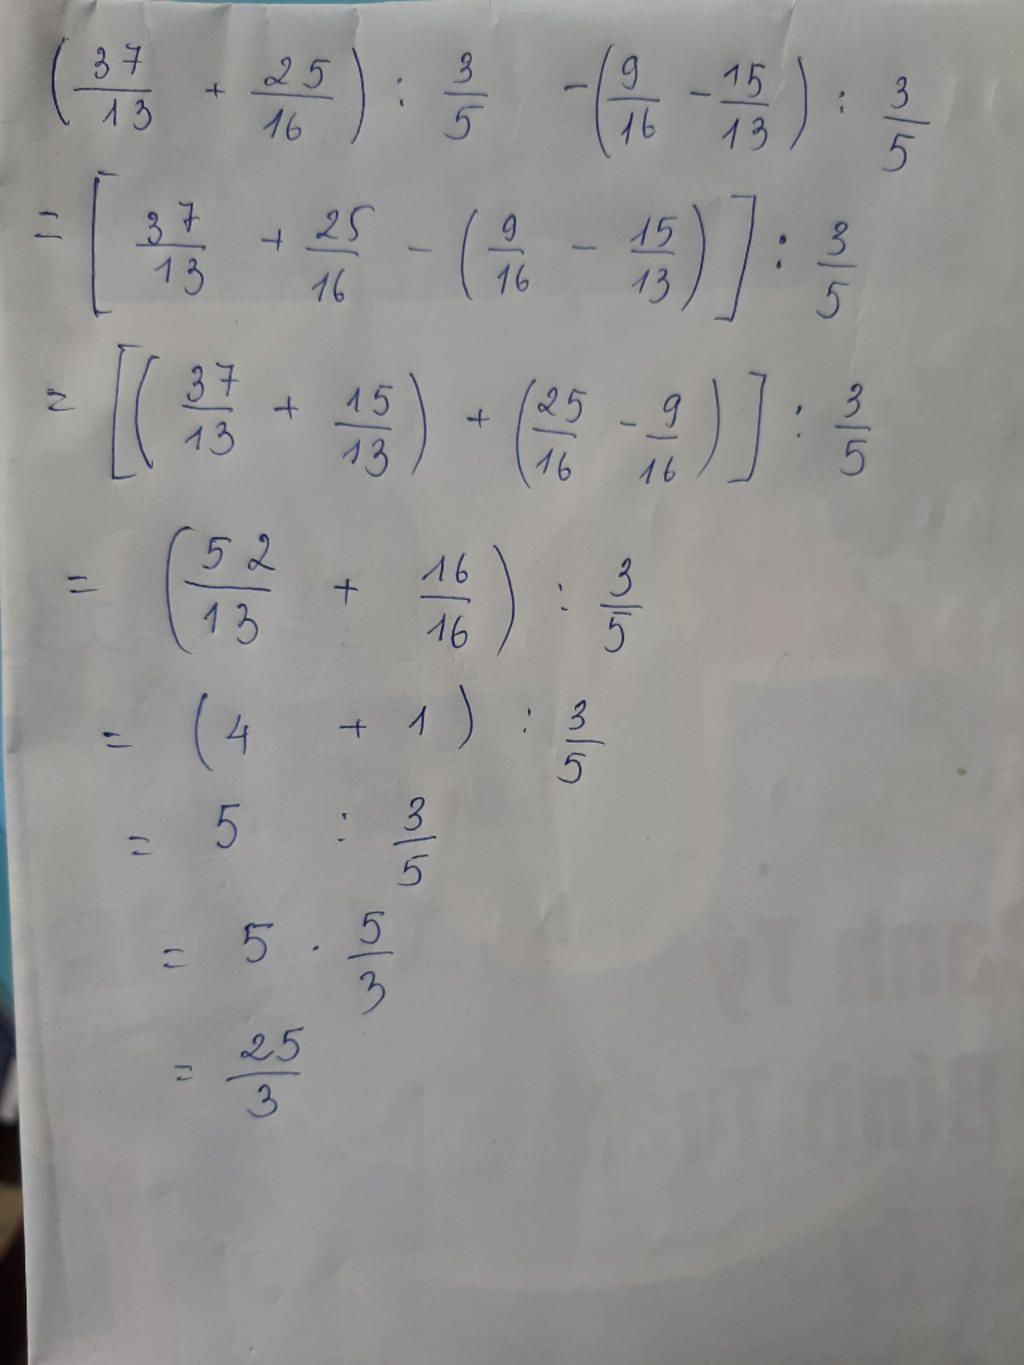 (37/13 + 25/16) : 3/5 -(9/16 - 15/13) : 3/5
= [37/13 + 25/16 - (9/16 - 15/13)] : 3/5
= [(37/13 + 15/13) + (25/16 - 9/16)] : 3/5
= (52/13 + 16/16) : 3/5
= (4 + 1) : 3/5
= 5 : 3/5
= 5 . 5/3
= 25/3